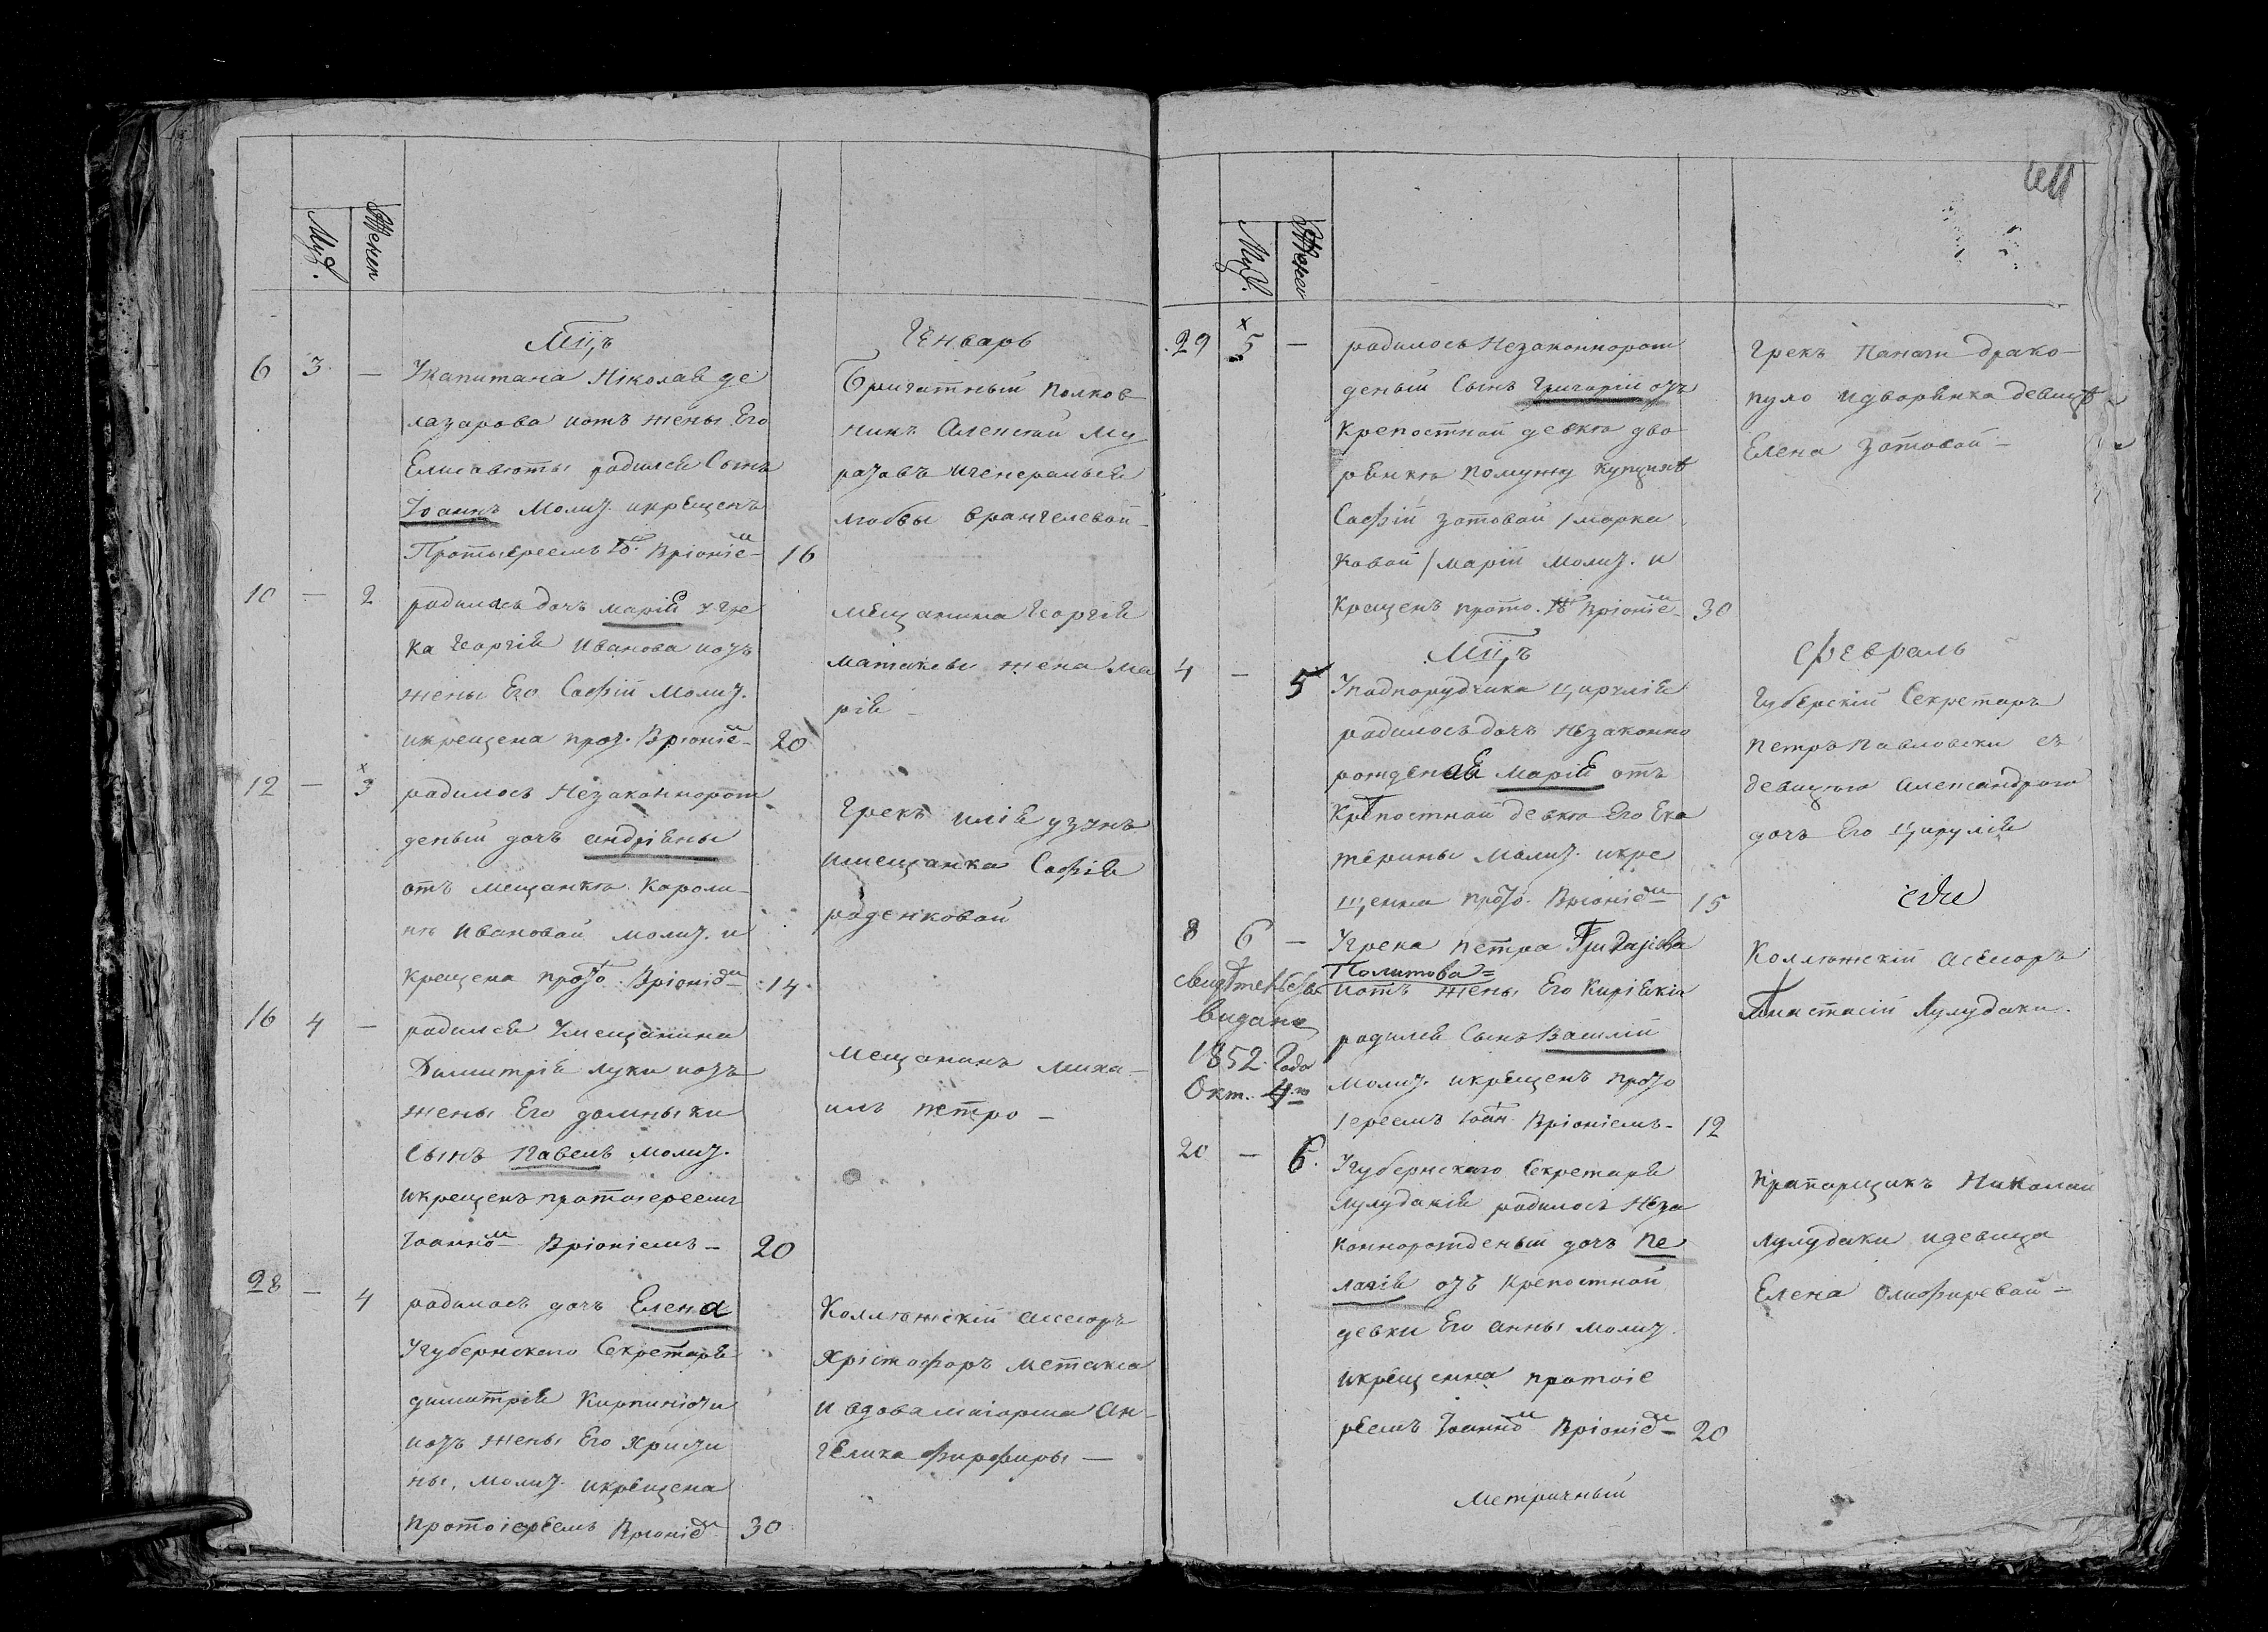 Муж.
Женск
Мцъ
Генварь
6 3 — Укапитана Николая де
лазарова иотъ жены Его
Елисаветы родился Сынъ
Іоаннъ Молит. икрещенъ
Протыереемъ Іо. Вріоніем 16
Бригатный полков
никъ Алексей Му
разавъ игенеральша
любвы врангелевой
10 — 2 родилась дочъ марія угре
ка георгія иванова иотъ
жены Его Софіи молит.
икрещена прот. Вріоніем 20
мещанина Георгія
матакевы жена ма
рія
12 — 3 родилось незаконнорож
деный дочъ андріяны
отъ мещанкы Кароли
ны ивановой молит. и
крещена прото Вріоніем 14
Грекъ илія узунъ
имещанка Софія
роденковай
16 4 — родился Умещанина
Димитрія луки иотъ
жены Его домныки
Сынъ Павелъ молит.
икрещенъ протоиереемъ
Іоанном Вріоніемъ 20
мещанинъ миха
илъ петро
28 — 4 родилась дочъ Елена
Угубернскаго Секретаря
димитрія Кирпиноти
иотъ жены Его Христи
ны, молит. икрещена
Протоіереемъ Вріоніем 30
Коллежскій ассесоръ
Христофоръ метакса
и вдова маіорша Ан
гелика фирфиры
Муж.
Женск
29 5 — родилось незаконнорож
деный Сынъ Григорій отъ
крепостной девкы дво
рянкы помужу купцихъ
Софій зотовой / марка
ковой / марій молит. и
крещенъ прото. Іо Вріоніем 30
Грекъ Панаги драко
пуло идворянка девица
Елена зотовой
Мцъ
Февраль
4 — 5 Уподпорудчика цирулія
родилось дочъ незаконно
рожденая марія отъ
крѣпостной девкы Его Ека
терины молит. икре
щенна прото. Вріоніем 15
Губерскій Секретарь
петръ павловски съ
девицою александрою
дочъ Его цирулія
8 6 — Угрека петра
Политова
иотъ жены Его Киріякіи
родился Сынъ Василій
молит. икрещенъ прото
іереемъ Іоан Вріоніемъ 12
свидѣтельство
видано
1852 Года
Окт. 4го
Коллежскій асесоръ
Анастасій Лулудаки.
20 — 6. Угубернскаго Секретаря
лулудакія родилось неза
коннорожденый дочъ Пе
лагія отъ крепостной
девки Его анны молит.
икрещенна протоіе
реемъ Іоанном Вріоніем 20
Прапорщикъ Николай
лулудаки идевица
Елена олифировай
Метричный